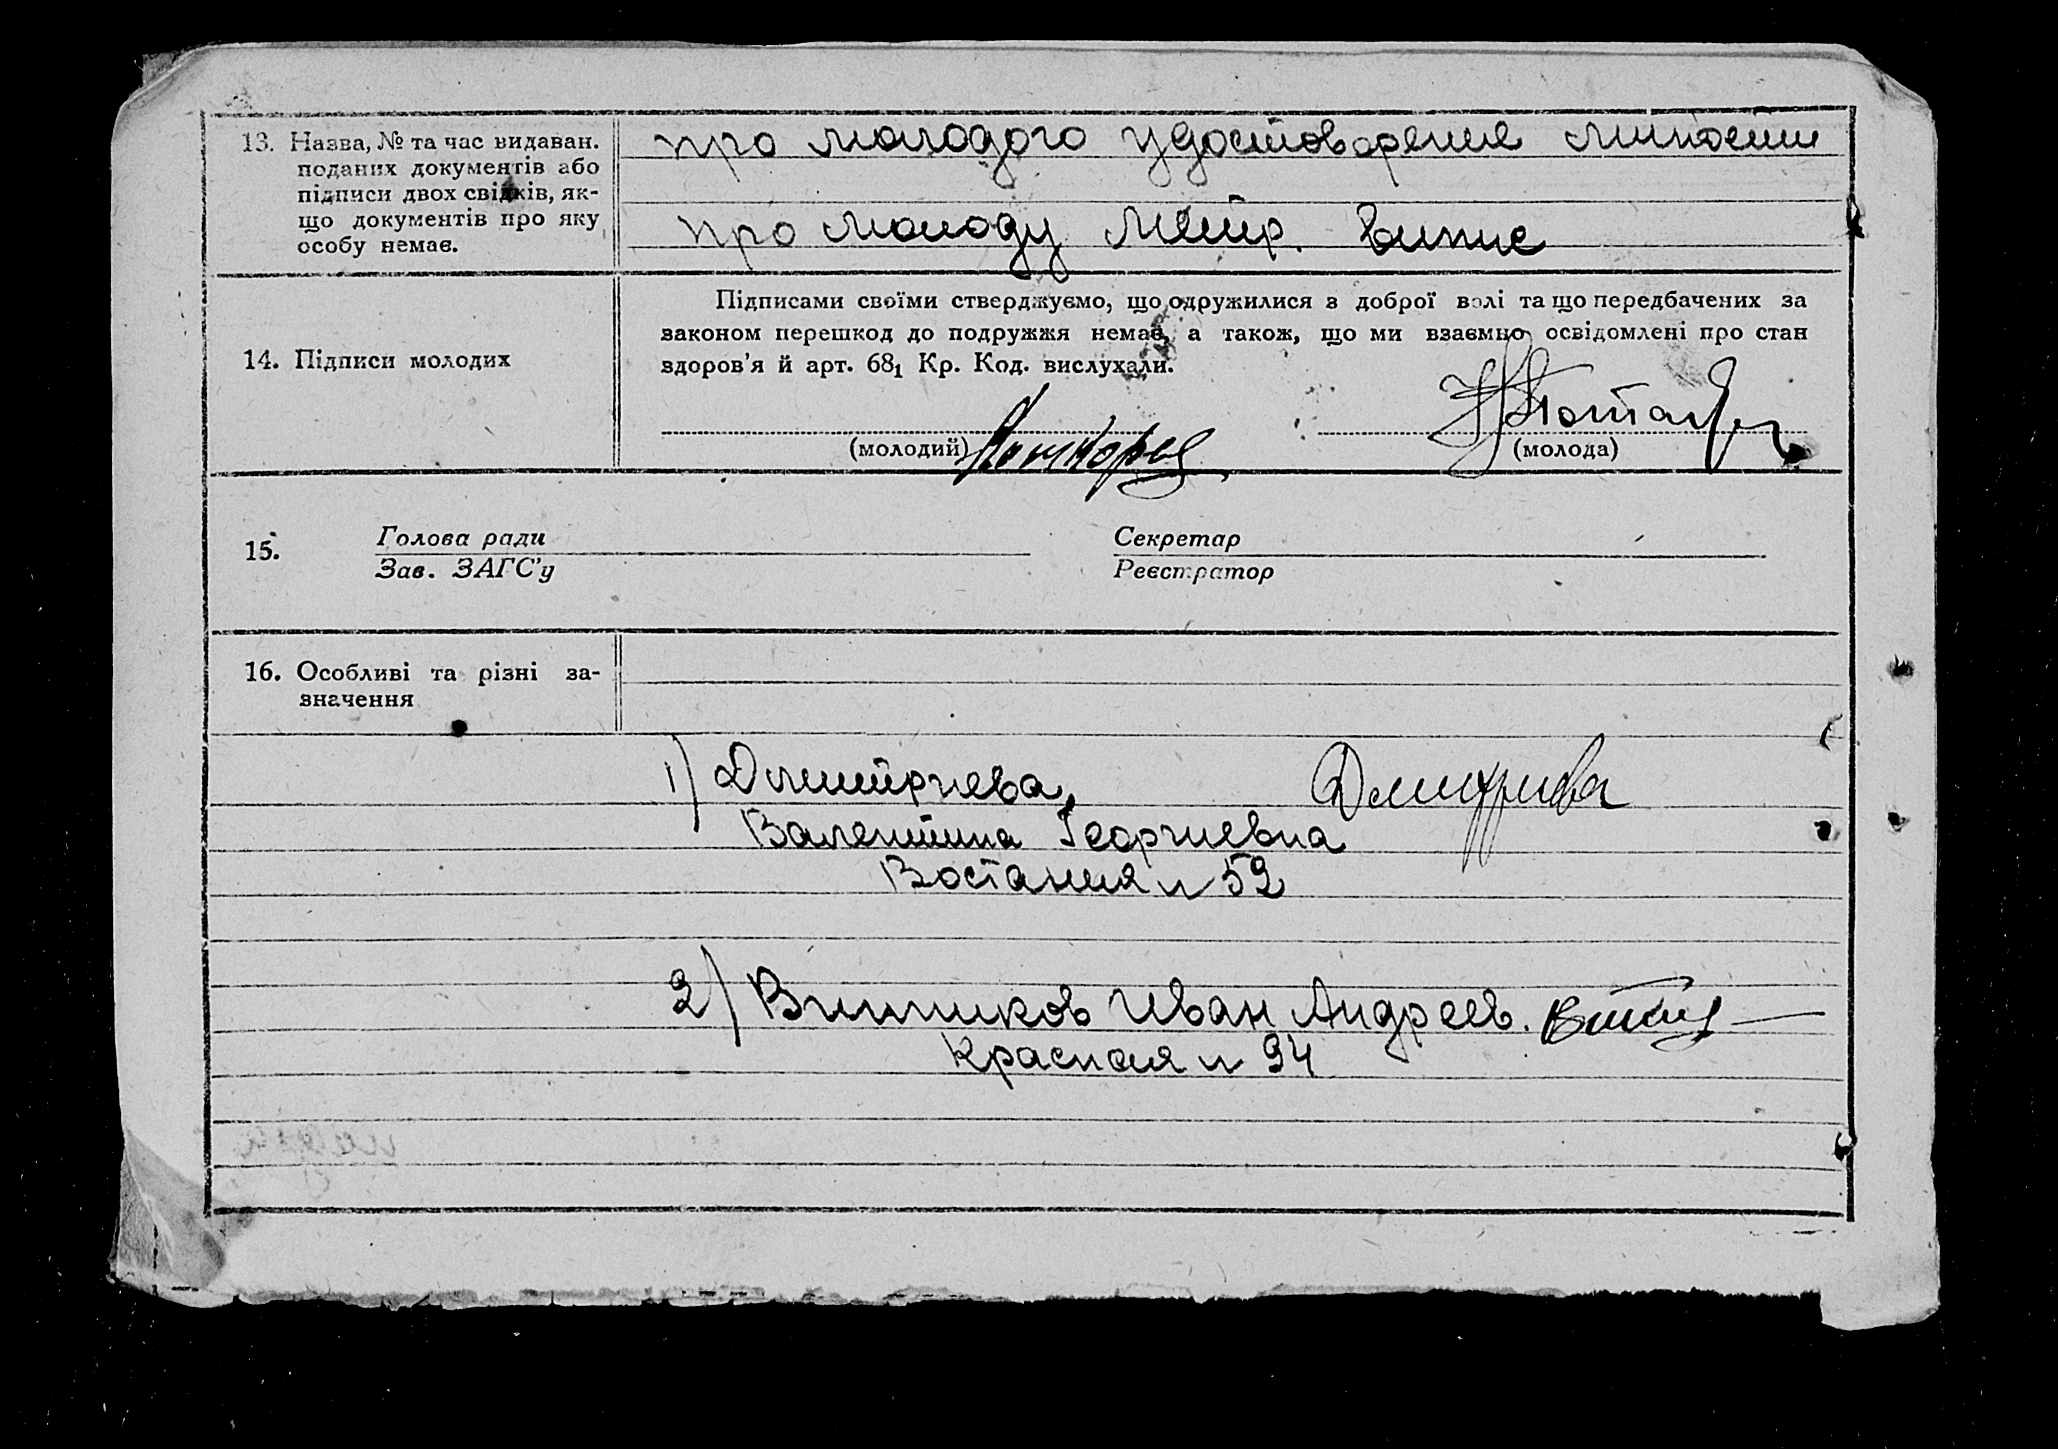 13. Назва, № та час видаван.
поданих документів або
підписи двох свідків, як-
що документів про яку
особу немає.
про молодого удостоверение личности
про молоду метр. випис
14. Підписи молодих
Підписами своїми стверджуємо, що одружилися з доброї волі та що передбачених за
законом перешкод до подружжя немає, а також, що ми взаємно освідомлені про стан
здоров'я й арт. 68₁ Кр. Код. вислухали.
(молодий)
(молода)
15.
Голова ради
Зав. ЗАГС'у
Секретар
Реєстратор
16. Особливі та різні за-
значення
1) Дмитриева, Дмитриева
Валентина Георгиевна
Востания № 52
2) Винников Иван Андреев.
Красная № 94